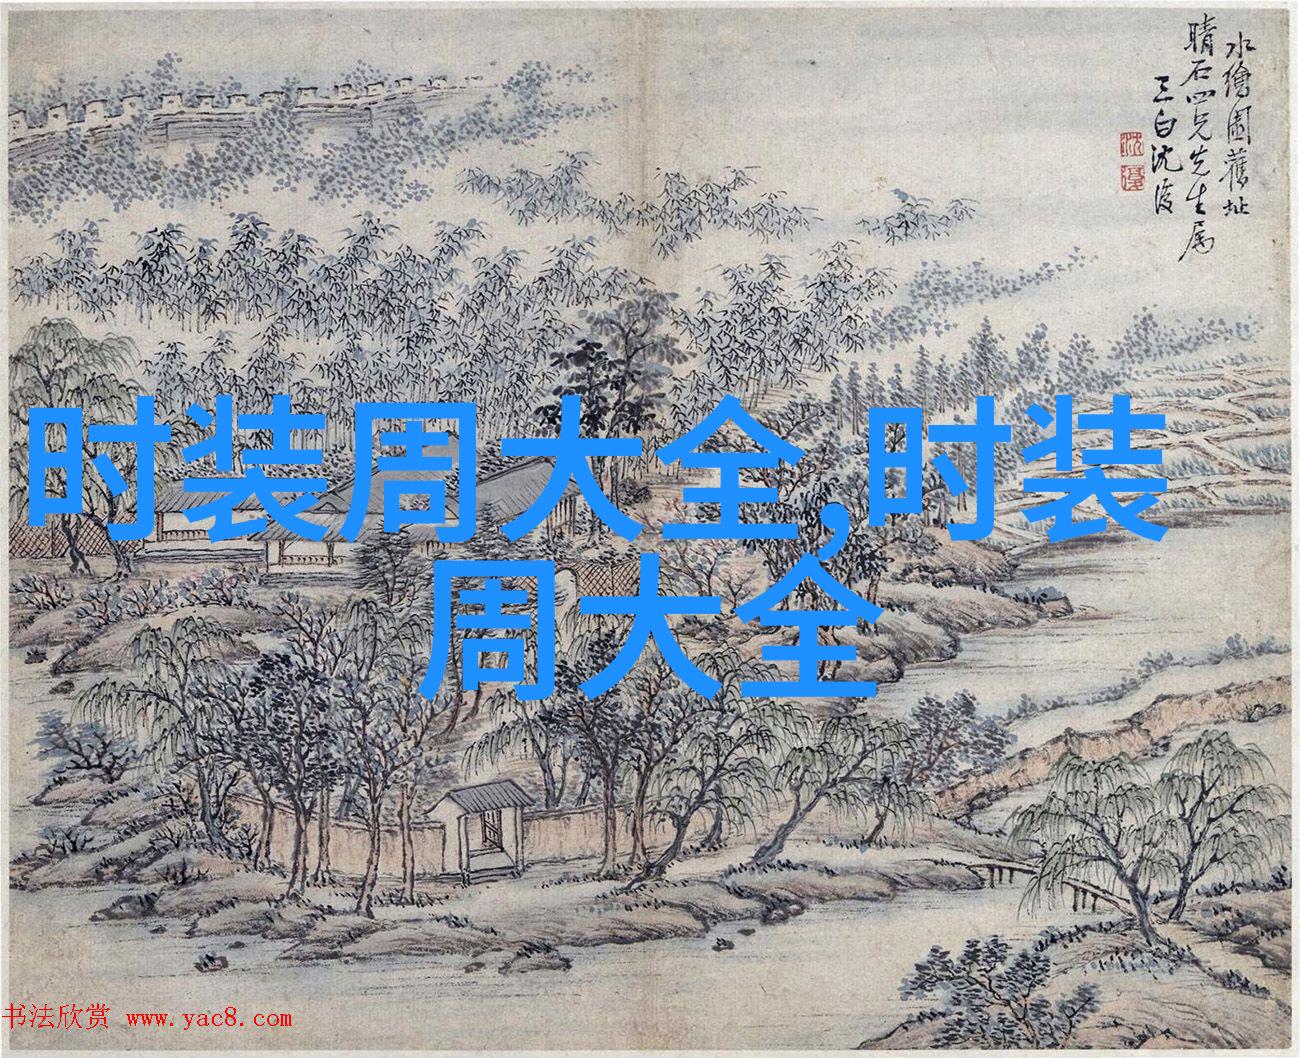 水繪園舊址
晴石四兄先生属
三白沈复
时装周大全,时装
周大全
书法欣赏 www.yac8.com